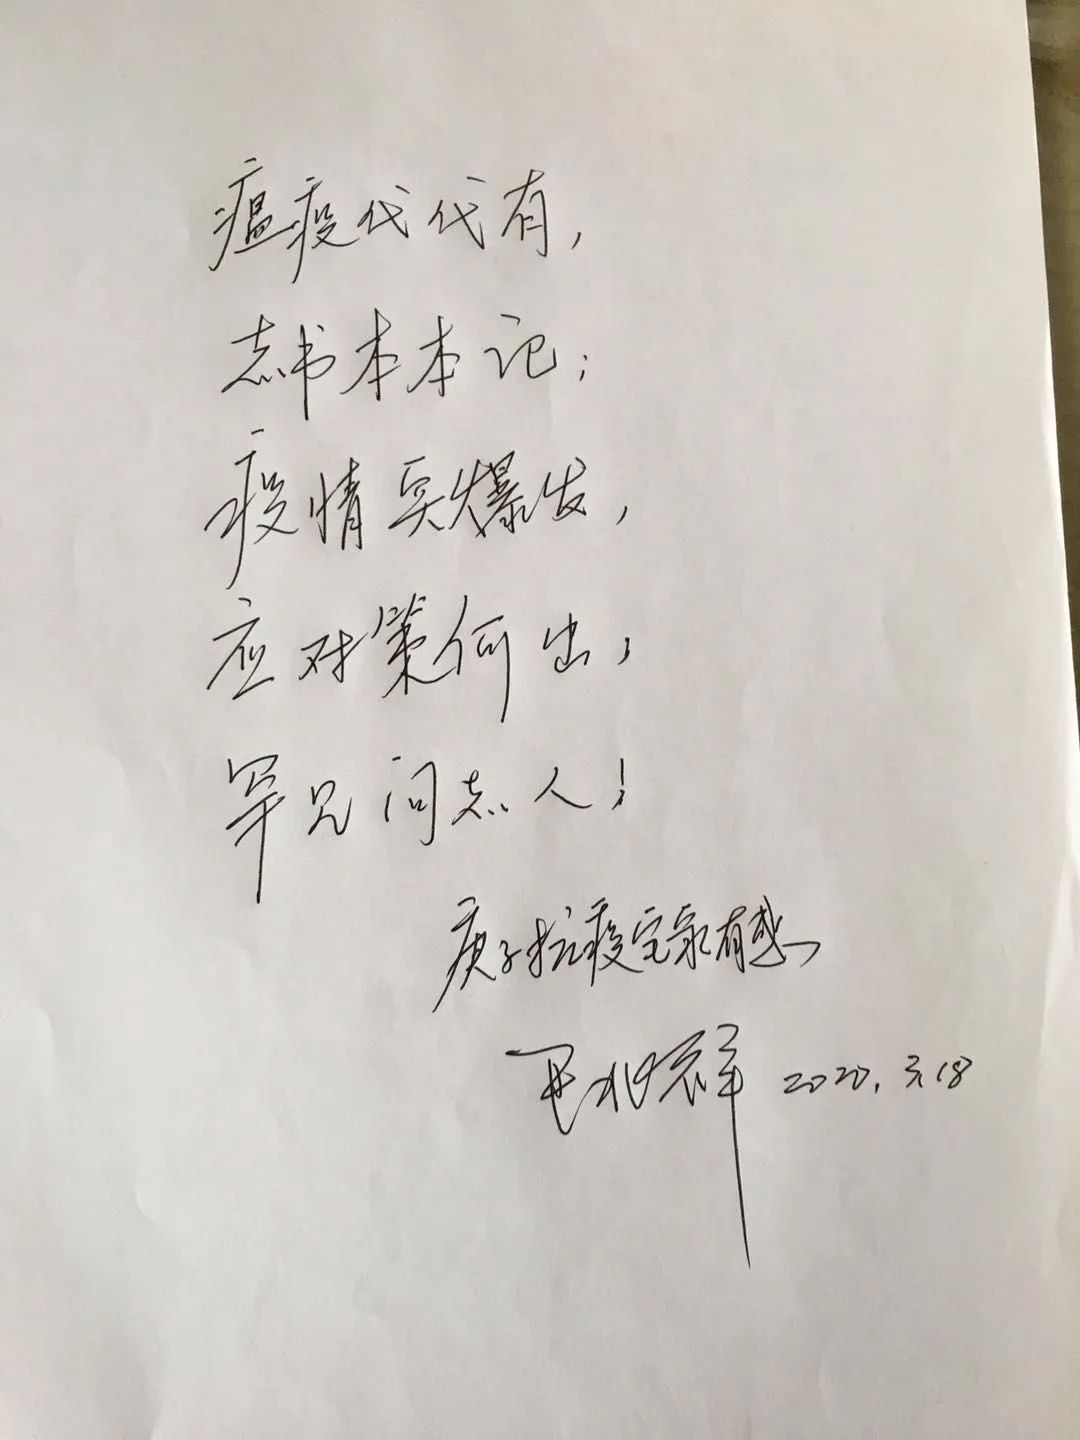 瘟疫代代有,
志书本本记;
疫情突爆发,
应对策何出,
罕见问志人!
庚子抗疫宅家有感
祥 2020.3.18